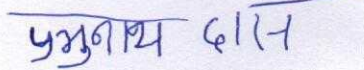 प्रभुनाथ दास